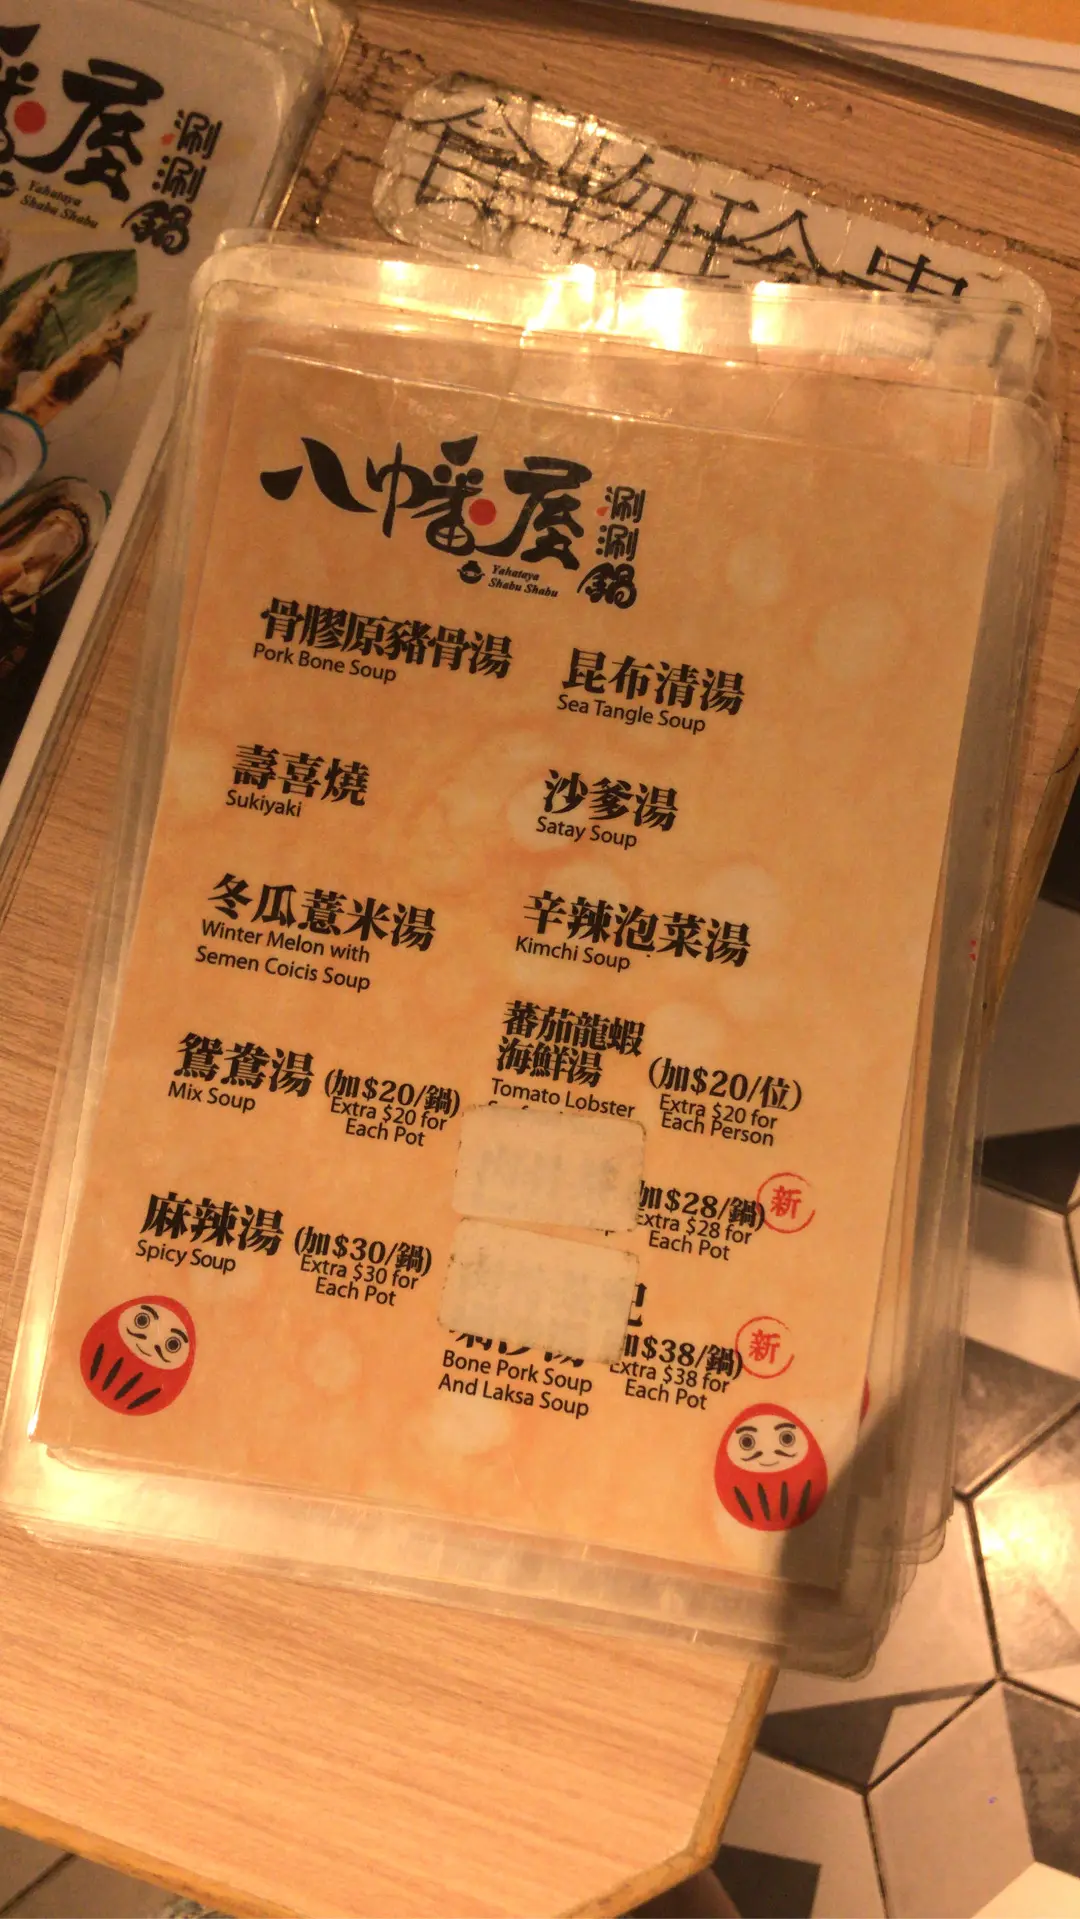 屋
涮涮鍋
Yahataya
Shabu Shabu
食物
八幡屋
涮涮鍋
Yahataya
Shabu Shabu
骨膠原豬骨湯
Pork Bone Soup
昆布清湯
Sea Tangle Soup
壽喜燒
Sukiyaki
沙爹湯
Satay Soup
冬瓜薏米湯
Winter Melon with
Semen Coicis Soup
辛辣泡菜湯
Kimchi Soup
鴛鴦湯 (加$20/鍋)
Mix Soup
Extra $20 for
Each Pot
蕃茄龍蝦
海鮮湯
(加$20/位)
Tomato Lobster
Extra $20 for
Each Person
加$28/鍋)
新
Extra $28 for
Each Pot
麻辣湯 (加$30/鍋)
Spicy Soup
Extra $30 for
Each Pot
加$38/鍋)
新
Bone Pork Soup
And Laksa Soup
Extra $38 for
Each Pot